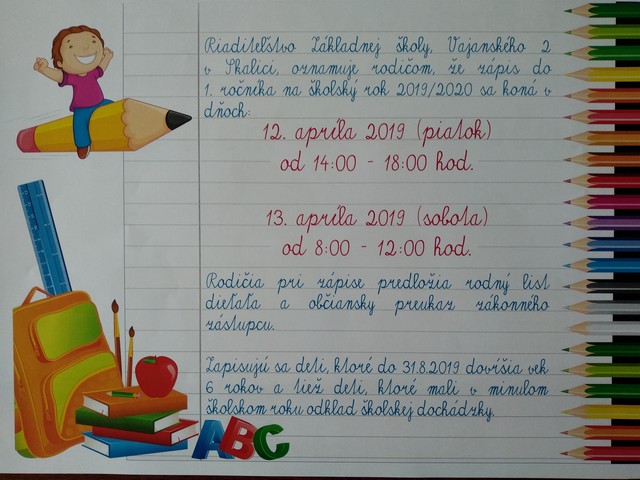 Riaditeľstvo Základnej školy, Vajanského 2
v Skalici, oznamuje rodičom, že zápis do
1. ročníka na školský rok 2019/2020 sa koná v
dňoch:
12. apríla 2019 (piatok)
od 14:00 - 18:00 hod.
13. apríla 2019 (sobota)
od 8:00 - 12:00 hod.
Rodičia pri zápise predložia rodný list
dieťaťa a občiansky preukaz zákonného
zástupcu.
Zapisujú sa deti, ktoré do 31.8.2019 dovŕšia vek
6 rokov a tiež deti, ktoré mali v minulom
školskom roku odklad školskej dochádzky.
ABC